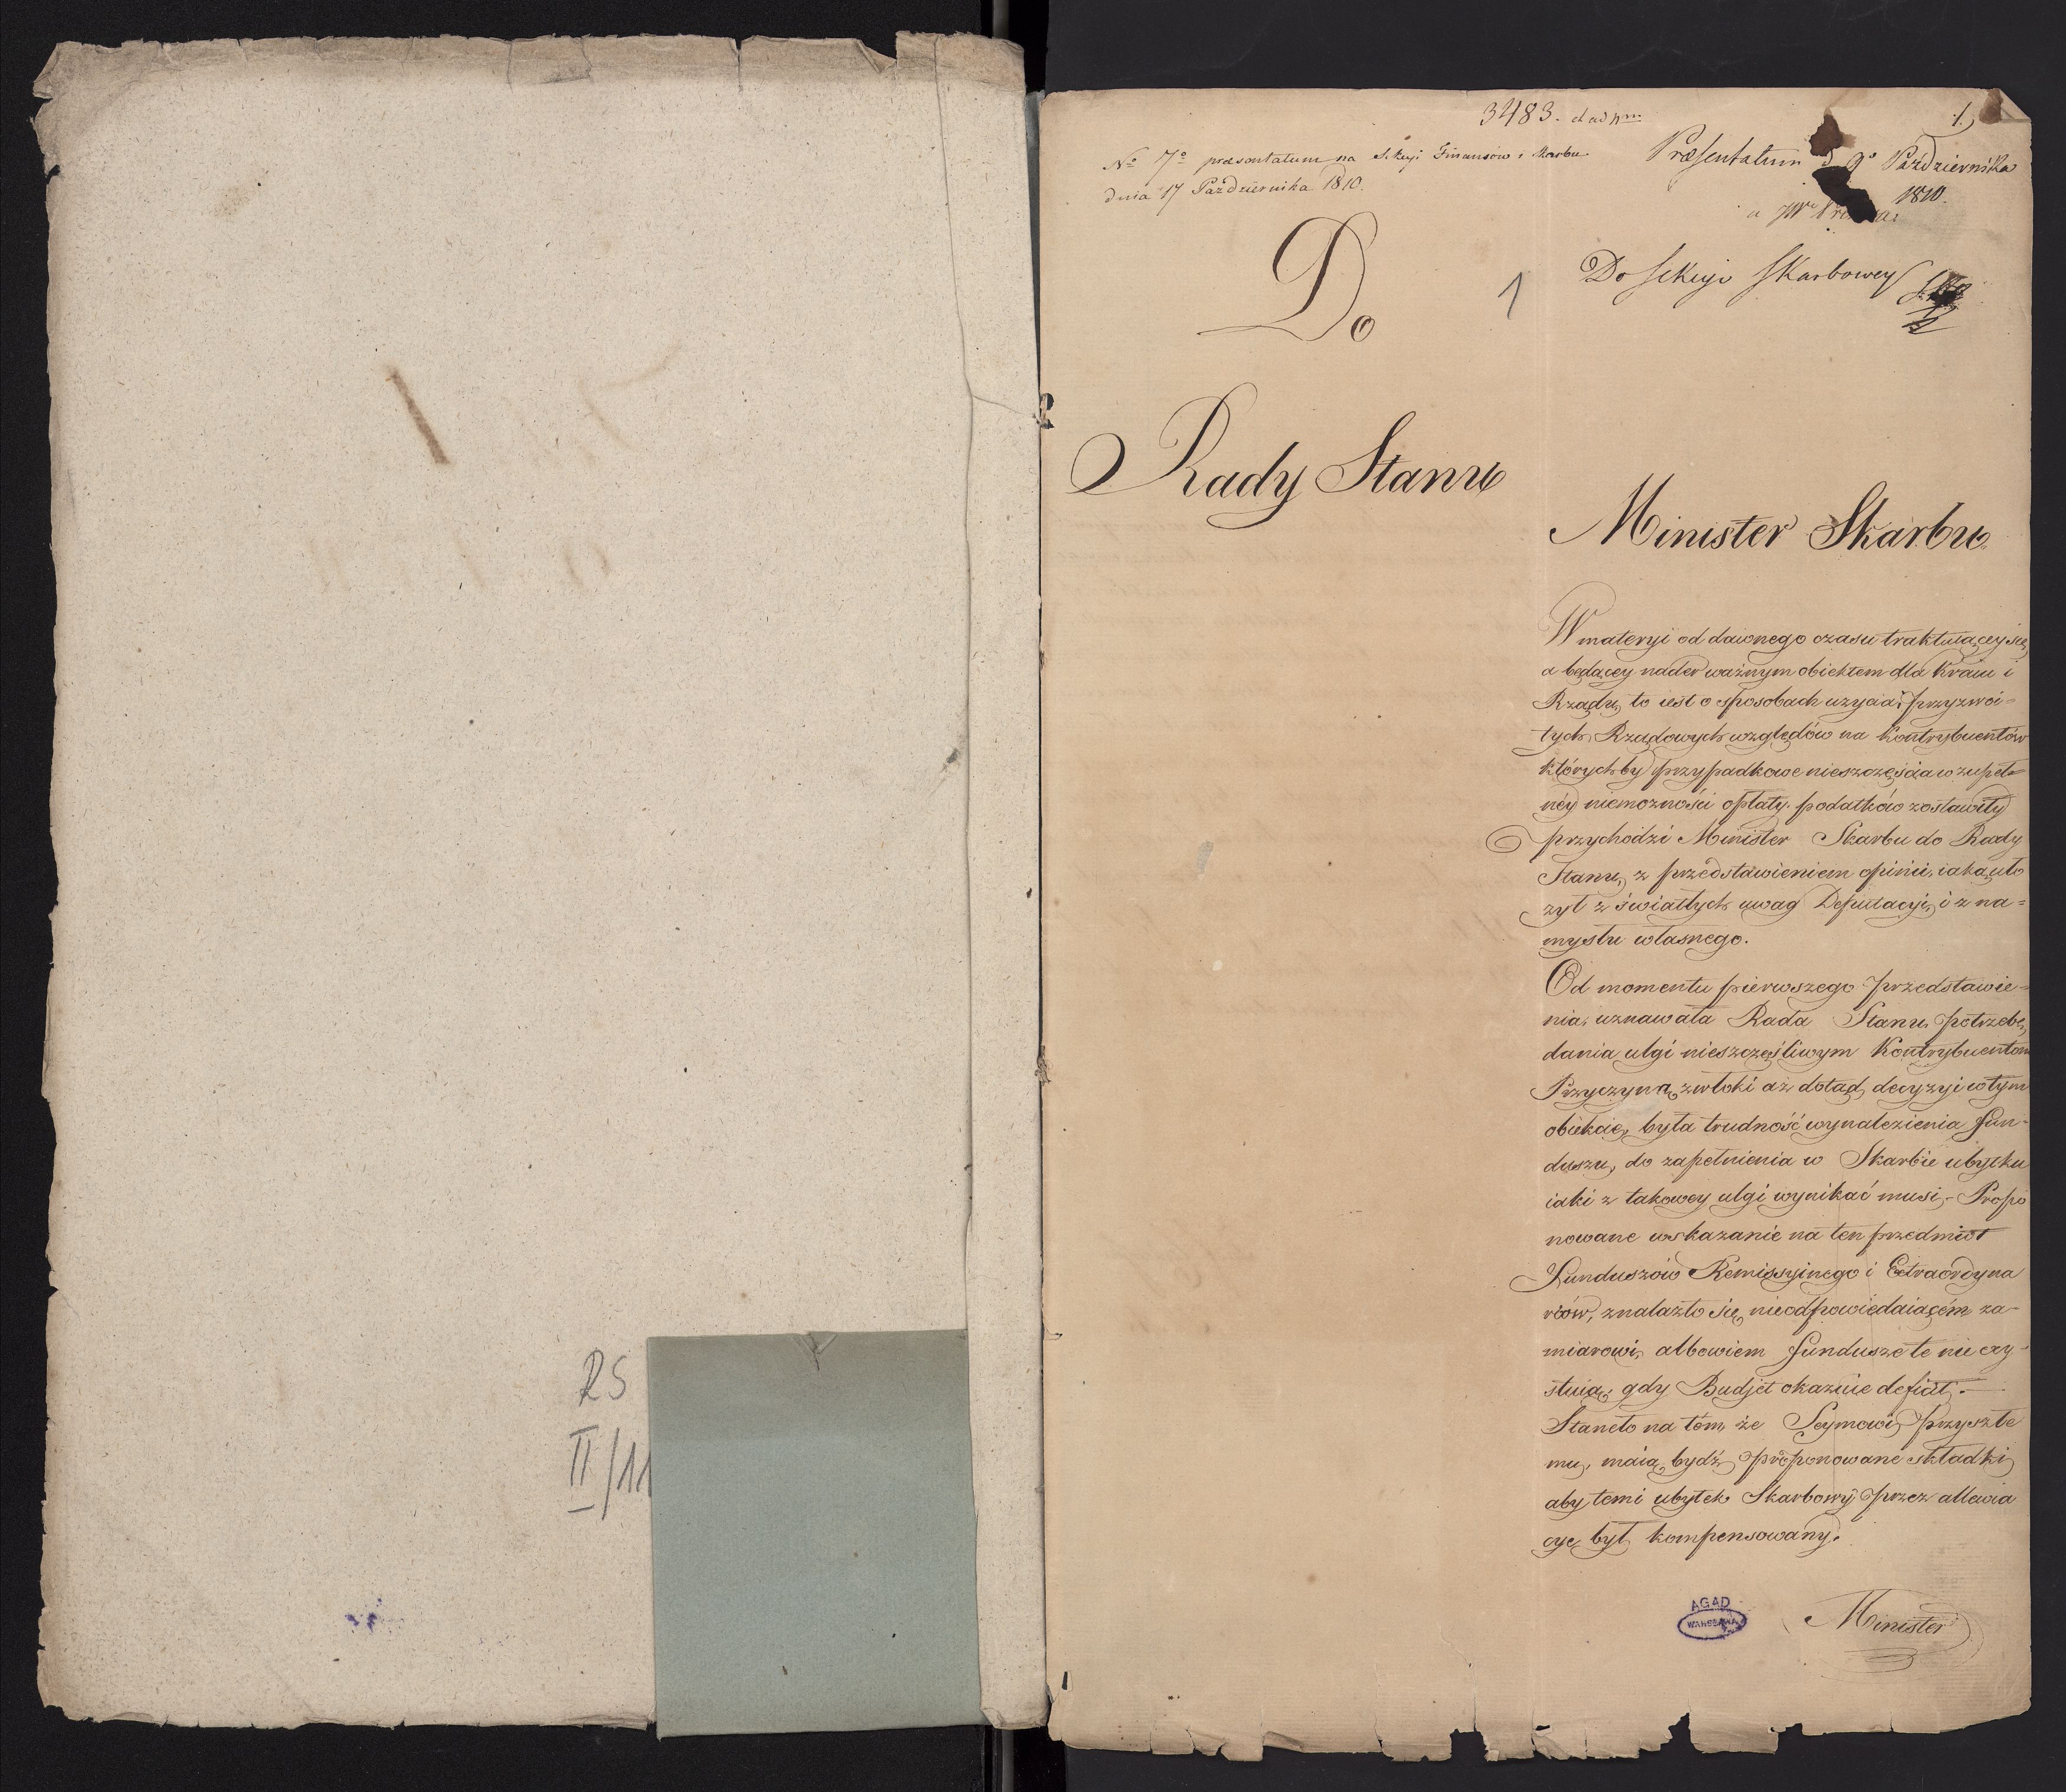 RS
II/11
3483. d ad nm
1.
No 7o præsentatum na Sekcyi Finansów i Skarbu
dnia 17 Pazdziernika 1810.
Præsentatum d 9o Pazdziernika
1810.
Do Sekcyi Skarbowey
1
Do
Rady Stanu
Minister Skarbu
W materyi od dawnego czasu traktuiącey się,
a będącey nader ważnym obiektem dla Kraiu i
Rządu, to iest o sposobach uzycia przyzwoi=
tych Rządowych względów na Kontrybuentów
którychby przypadkowe nieszczęścia w zupeł=
néy niemożności opłaty podatków zostawiły
przychodzi Minister Skarbu do Rady
Stanu, z przedstawieniem opinii, iaką uło
żył z światłych uwag Deputacyi, i z na=
mysłu własnego.
Od momentu pierwszego przedstawie=
nia, uznawała Rada Stanu potrzebę,
dania ulgi nieszczęśliwym Kontrybuentom
Przyczyną zwłoki aż dotąd decyzyi w tym
obiekcie, była trudność wynalezienia fun=
duszu, do zapełnienia w Skarbie ubytku
iaki z takowey ulgi wynikać musi,- Propo
nowane wskazanie na ten przedmiot
Funduszów Remissyinego i Extraordyna
riów, znalazło się nieodpowiedaiącém za=
miarowi, albowiem fundusze te nie exy=
stuią, gdy Budjet okazuie deficit.-
Staneło na tém, że Seymowi przyszłe
mu, maią bydź proponowane składki
aby temi ubytek Skarbowy przez allewia
cye był kompensowany.
Minister
AGAD
WARSZAWA